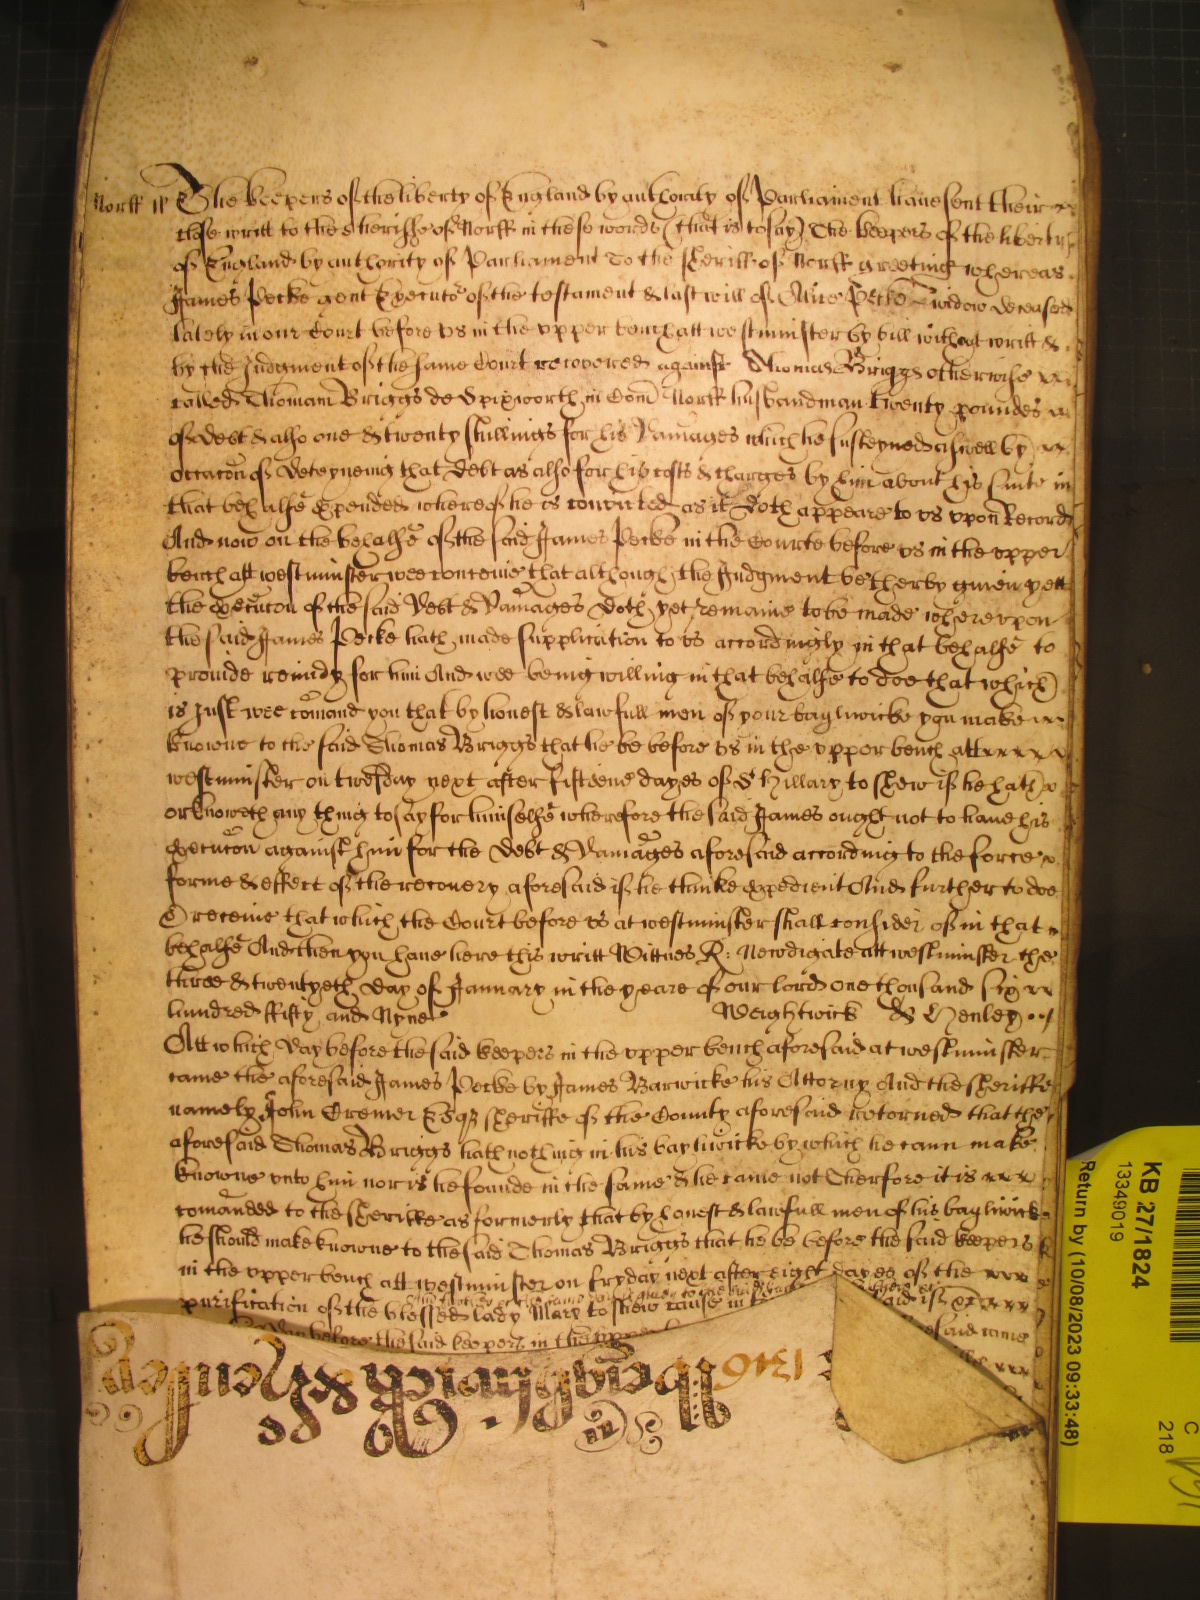 Norff ss The keepers of the liberty of England by authority of Parliament haue sent their
close writt to the sheriffe of Norff in these words (that is to say) The keepers of the liberty
of England by authority of Parliament To the sheriff of Norff greeting whereas
James Pecke gent Executor of the testament & last will of Alice Pecke widow deceased
lately in our Court before vs in the vpper bench att westminster by bill without writt &
by the Judgment of the same Court recovered against Thomas Briggs otherwise
called Thomam Briggs de Spixworth in Com Norff husbandman twenty poundes
of debt & also one & twenty shillings for his Damages which he susteyned aswell by
occacon of deteyneing that debt as also for his costs & charges by him about his suite in
that behalfe expended whereof he is convicted as it doth appeare to vs vpon Record
And now on the behalfe of the said James Pecke in the Courte before vs in the vpper
bench att westminster wee conceiue that although the Judgment be therby giuen yett
the execucon of the said debt & Damages doth yet remaine to be made wherevpon
the said James Pecke hath made supplication to vs accordingly in that behalfe to
prouide remidy for him And wee being willing in that behalfe to doe that which
is just wee comand you that by honest & lawfull men of your bayliwicke you make
knowne to the said Thomas Briggs that he be before vs in the vpper bench att
westminster on twesday next after fifteene dayes of St Hillary to shew if he hath
or knoweth any thing to say for himselfe wherefore the said James ought not to haue his
execucon against him for the debt & Damages aforesaid according to the force
forme & effect of the recovery aforesaid if he thinke expedient And further to doe
& receiue that which the Court before vs at westminster shall consider of in that
behalfe And then you haue here this writt Wittnes R: Newdigate att westminster the
three & twentyeth day of January in the yeare of our lord one thousand six
hundred ffifty and Nyne Weightwick & Henley
Att which day before the said keepers in the vpper bench aforesaid at westminster
came the aforesaid James Pecke by James Barwicke his Attorny And the sheriffe
namely John Cremer Esqr sheriffe of the County aforesaid retorned that the
aforesaid Thomas Briggs hath nothing in his bayliwicke by which he cann make
knowne vnto him nor is he founde in the same & he came not Therfore it is
comanded to the sheriffe as formerly that by honest & lawfull men of his bayliwick
he should make knowne to the said Thomas Briggs that he be before the said keepers
in the vpper bench att westminster on fryday next after eight dayes of the
purification of the blessed lady Mary to shew cause in
day before the said keepers in the vpper
said came
1316
Weightwick & Henley
KB 27/1824
13349019
Return by (10/08/2023 09:33:48)
C
218